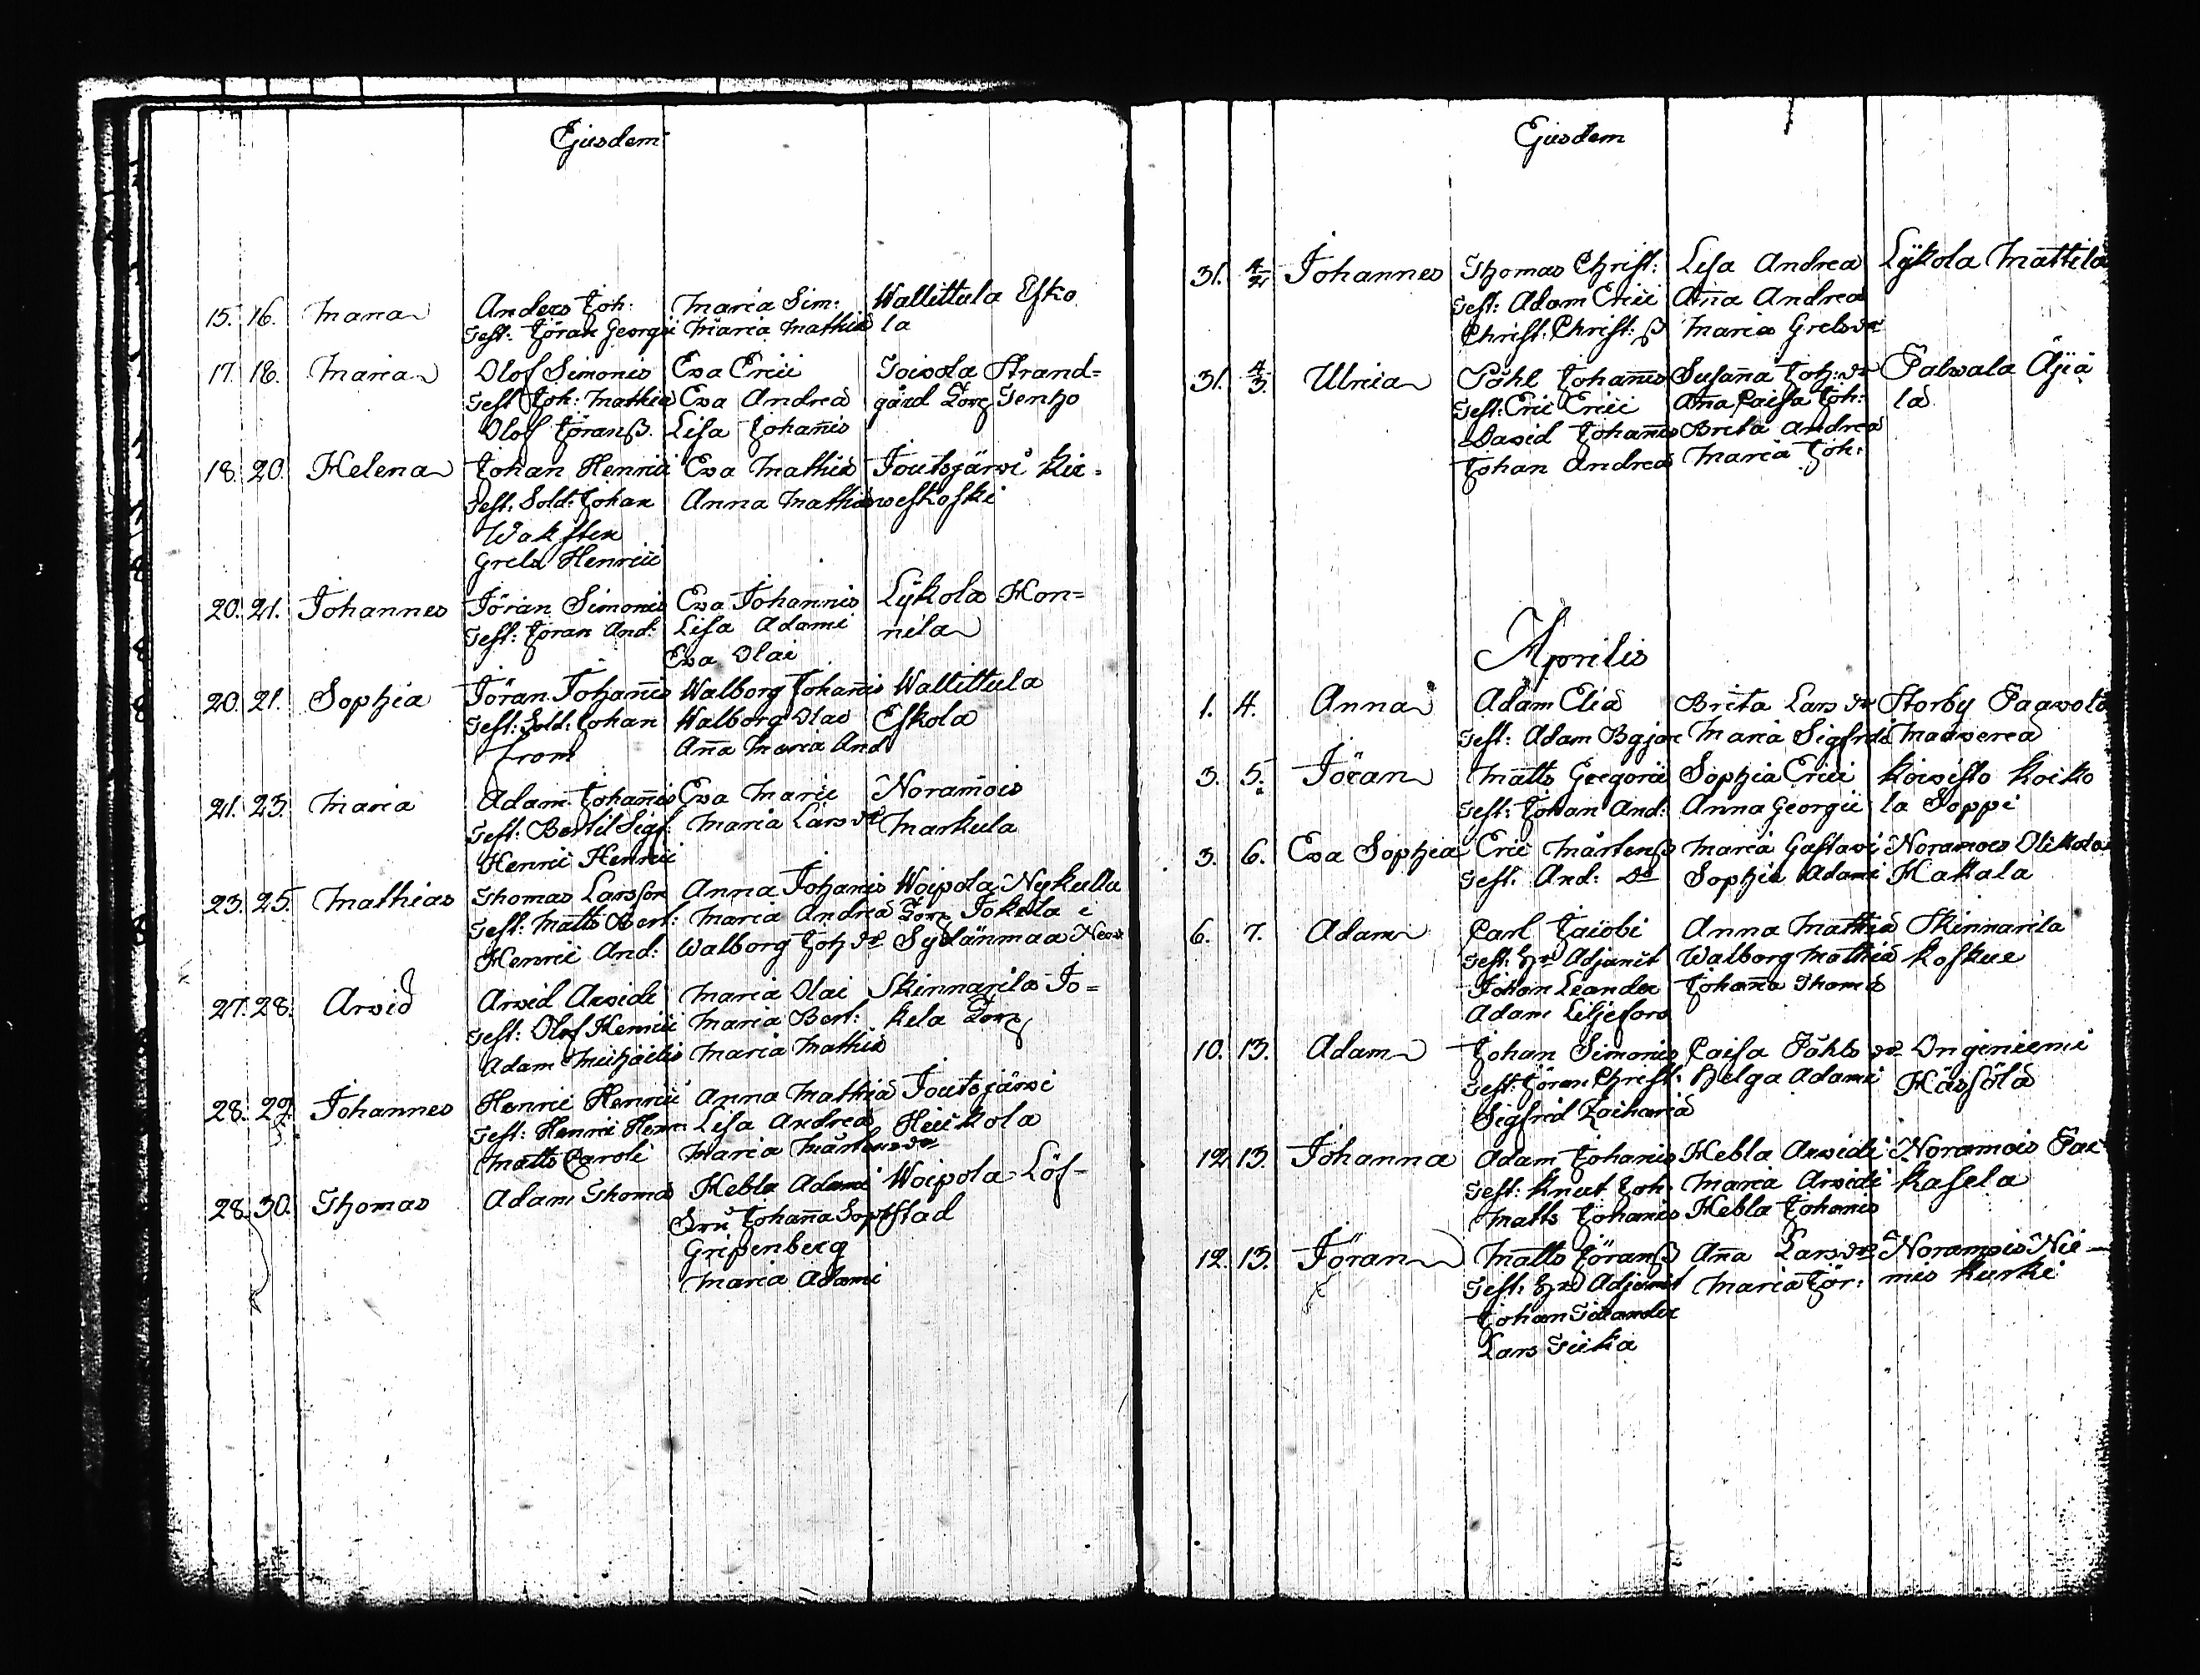 Ejusdem
15. 16. Maria Anders Joh: Maria Sim: Wallittula Esko
Test: Jöran Georgii Maria Mathiæ la
17. 18. Maria Olof Simonis Eva Erici Toivola Strand=
Test Joh: Mathiæ Eva Andreæ gård Torp Tenho
Olof Göranss. Lisa Johañis
18. 20. Helena Johan Henrici Eva Mathiæ Joutsjärvi Kir=
Test: Sold: Johan Anna Mathiæ weskoski
Waksten
Greta Henrici
20. 21. Johannes Jöran Simonis Eva Johannis Lÿkola Hon=
Test: Jöran And: Lisa Adami nila
Eva Olai
20. 21. Sophia Jöran Johañis Walborg Johañis Wallittula
Test: Sold: Johan Walborg Olai Eskola
From Aña Maria And
21. 23. Maria Adam Johañis Eva Marci Noramois
Test: Bertil Sigf: Maria Lars dr Markula
Henric Henrici
23. 25. Mathias Thomas Larsson Anna Johanis Woipola Nykulla
Test: Matts Bert: Maria Andreæ Torp Jokela i
Henric And: Walborg Joh dr Sydänmaa
27. 28. Arvid Arvid Arvidi Maria Olai Skinnarila Jo=
Test: Olof Henrici Maria Bert: kela Torp
Adam Michaelis Maria Mathiæ
28. 29. Johannes Henric Henrici Anna Mathiæ Joutsjärvi
Test: Henric Henr: Lisa Andreæ Heickola
Matts Caroli Maria Mårtens dr
28. 30. Thomas Adam Thomæ Hebla Adami Woipola Löf-
Fru Johaña Soph stad
Gripenberg
Maria Adami
Ejusdem
31. 4/2 Johannes Thomas Christ: Lisa Andreæ Lÿkola Mattila
Test: Adam Erici Aña Andreæ
Christ: Christ: ss Maria Grels dr
31. 4/3. Ulrica Påhl Johañis Susaña Joh: dr Palvala Äjiä
Test: Eric Erici Aña Caisa Joh: lä
David Johañis Brita Andreæ
Johan Andreæ Maria Joh:
Aprilis
1. 4. Anna Adam Eliæ Brita Lars dr Storby Paavola
Test: Adam Bajar Maria Sigfridi
3. 5. Jöran Matts Gregorii Sophia Erici Koivisto Koiko
Test: Johan And: Anna Georgii la Soppi
3. 6. Eva Sophia Eric Mårtenss Maria Gustavi Noramois Olikola
Test: And: Do Sophia Adami Kakala
6. 7. Adam Carl Jacobi Anna Mathiæ Skinnarila
Test: Hr Adjunct Walborg Mathiæ Koskue
Johan Leander Johaña Thomæ
Adam Liljefors
10. 13. Adam Johan Simonis Caisa Påhls dr Onginiemi
Test: Jöran Christ: Helga Adami Hässölä
Sigfrid Zachariæ
12. 13. Johanna Adam Johanis Hebla Arvidi Noramois Pac
Test: Knut Joh: Maria Arvidi kasela
Matts Johanis Hebla Johanis
12. 13. Jöran Matts Göranss Aña Lars dr Noramois Nie-
Test: Hr Adjunct Maria Jör: mis Kurki
Johan
Lars